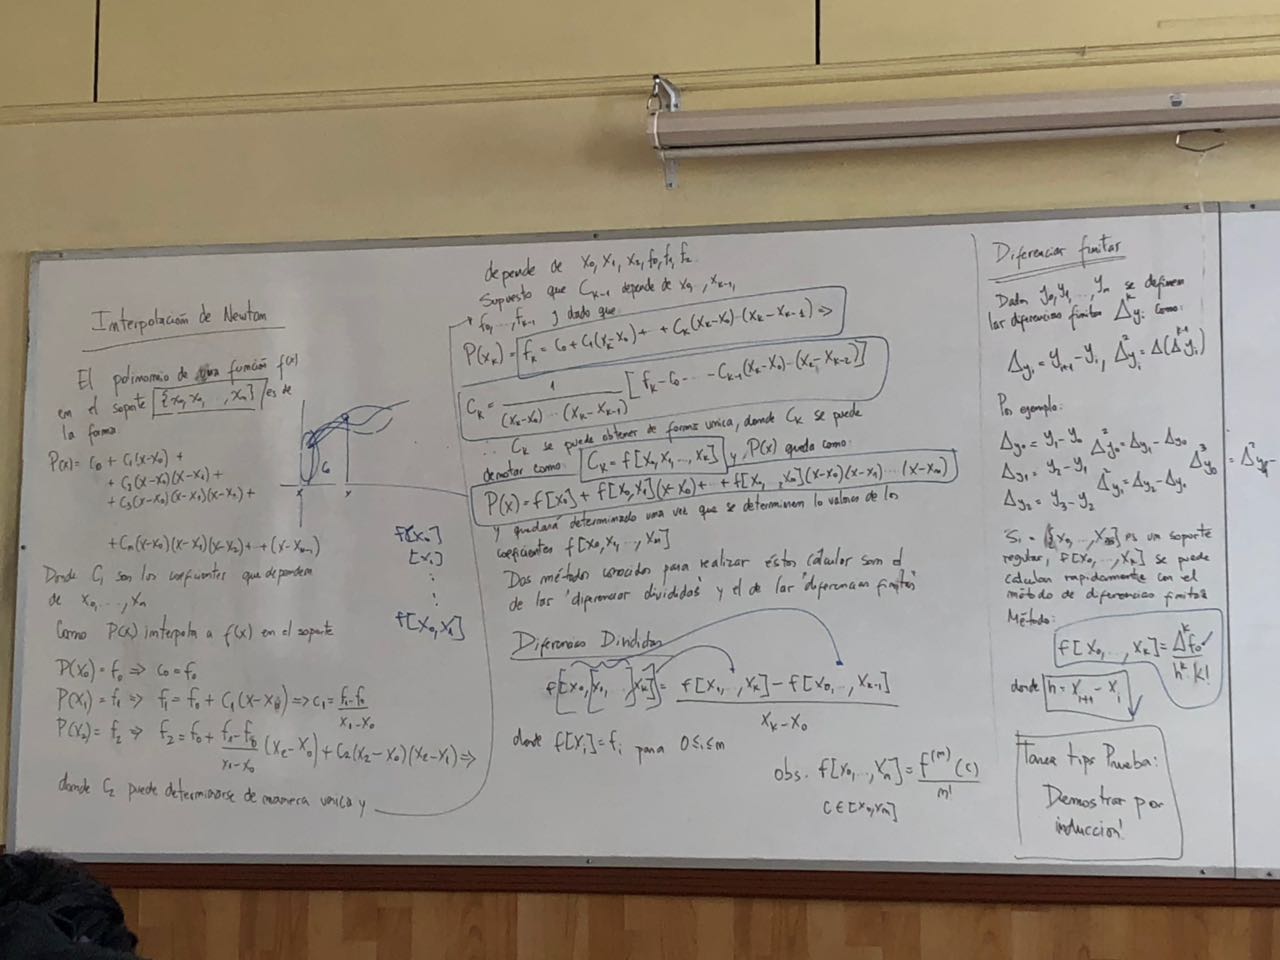 Interpolación de Newton
El polinomio de una función f(x)
en el soporte {x₀, x₁, ..., xₙ} es de
la forma:
P(x) = C₀ + C₁(x-x₀) +
+ C₂(x-x₀)(x-x₁) +
+ C₃(x-x₀)(x-x₁)(x-x₂) +
+ Cₙ(x-x₀)(x-x₁)(x-x₂) ... (x-xₙ₋₁)
Donde Cᵢ son los coeficientes que dependen
de x₀, ..., xₙ
Como P(x) interpola a f(x) en el soporte
P(x₀) = f₀ ⇒ C₀ = f₀
P(x₁) = f₁ ⇒ f₁ = f₀ + C₁(x-x₀) ⇒ C₁ = (f₁-f₀)/(x₁-x₀)
P(x₂) = f₂ ⇒ f₂ = f₀ + (f₁-f₀)/(x₁-x₀) (x₂-x₀) + C₂(x₂-x₀)(x₂-x₁) ⇒
donde C₂ puede determinarse de manera unica y
f[x₀]
[x₁]
⋮
f[x₀,x₁]
depende de x₀, x₁, x₂, f₀, f₁, f₂
Supuesto que Cₖ₋₁ depende de x₀, ..., xₖ₋₁,
f₀, ..., fₖ₋₁ y dado que
P(xₖ) = fₖ = C₀ + C₁(xₖ-x₀) + ... + Cₖ(xₖ-x₀)...(xₖ-xₖ₋₁) ⇒
Cₖ = 1/((xₖ-x₀)...(xₖ-xₖ₋₁)) [fₖ - C₀ - ... - Cₖ₋₁(xₖ-x₀)...(xₖ-xₖ₋₂)]
∴ Cₖ se puede obtener de forma unica, donde Cₖ se puede
denotar como: Cₖ = f[x₀, x₁, ..., xₖ] y, P(x) queda como:
P(x) = f[x₀] + f[x₀,x₁](x-x₀) + ... + f[x₀, ..., xₙ](x-x₀)(x-x₁)...(x-xₙ)
y quedará determinado una vez que se determinen lo valores de los
coeficientes f[x₀, x₁, ..., xₙ]
Dos métodos conocidos para realizar éstos calculor som el
de las "diferencias divididas" y el de las "diferencias finitas"
Diferencias Divididas
f[x₀, [x₁, ..., ] xₖ] = (f[x₁, ..., xₖ] - f[x₀, ..., xₖ₋₁])/(xₖ-x₀)
donde f[xᵢ] = fᵢ para 0≤i≤n
obs. f[x₀, ..., xₙ] = f⁽ⁿ⁾(c)/n!
c∈[x₀,xₙ]
Diferencias finitas
Dados y₀, y₁, ..., yₙ se definen
las diferencias finitas Δᵏyᵢ como:
Δyᵢ = yᵢ₊₁ - yᵢ, Δ²yᵢ = Δ(Δᵏ⁻¹yᵢ)
Por ejemplo:
Δy₀ = y₁ - y₀ Δ²y₀ = Δy₁ - Δy₀
Δy₁ = y₂ - y₁ Δ²y₁ = Δy₂ - Δy₁ Δ³y₀ = Δ²y₁ -
Δy₂ = y₃ - y₂
Si = {x₀, ..., xₙ} es un soporte
regular, f[x₀, ..., xₖ] se puede
calcular rapidamente con el
método de diferencias finitas
Método:
f[x₀, ..., xₖ] = Δᵏf₀/(hᵏ k!)
donde h = xᵢ₊₁ - xᵢ
Tarea tipo Prueba:
Demostrar por
induccion!